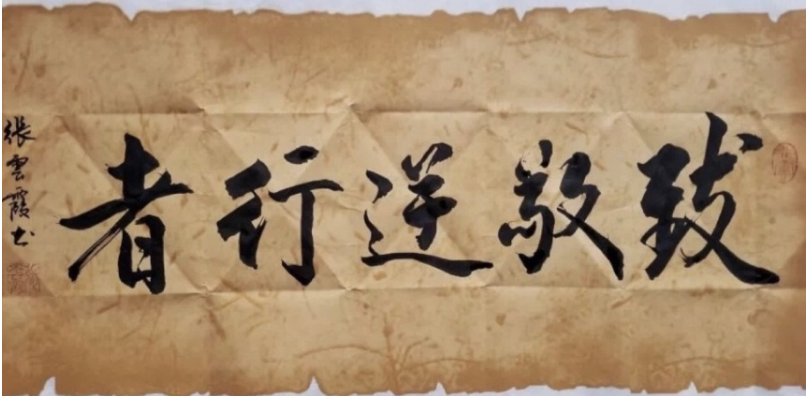 致敬逆行者
張雲霞书